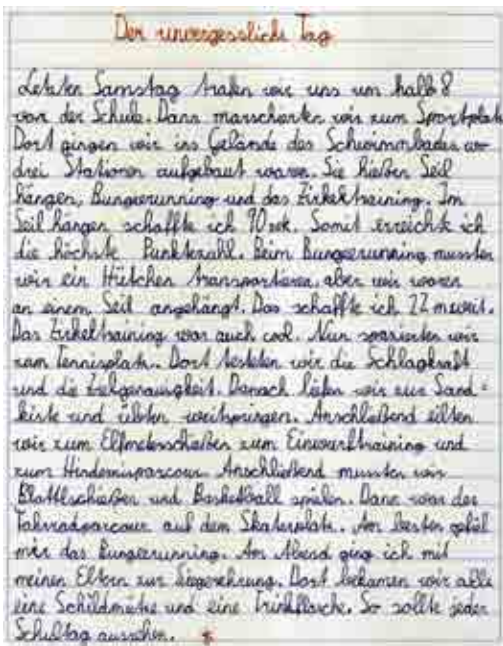 Der unvergessliche Tag
Letzten Samstag trafen wir uns um halb 8
vor der Schule. Dann marschierten wir zum Sportplatz
Dort gingen wir ins Gelände des Schwimmbades wo
drei Stationen aufgebaut waren. Sie hießen Seil
hängen, Bungeerunning und das Zirkeltraining. Im
Seil hängen schaffte ich 90 sek. Somit erreichte ich
die höchste Punktezahl. Beim Bungeerunning mussten
wir ein Hütchen transportieren, aber wir waren
an einem Seil angehängt. Das schaffte ich 22 m weit.
Das Zirkeltraining war auch cool. Nun spazierten wir
zum Tennisplatz. Dort testeten wir die Schlagkraft
und die Zielgenauigkeit. Danach liefen wir zur Sand=
kiste und übten weitspringen. Anschließend eilten
wir zum Elfmeterschießen zum Einwurftraining und
zum Hindernisparcour. Anschließend mussten wir
Blattlschießen und Basketball spielen. Dann war der
Fahrradparcour auf dem Skaterplatz. Am besten gefiel
mir das Bungeerunning. Am Abend ging ich mit
meinen Eltern zur Siegerehrung. Dort bekamen wir alle
eine Schildmütze und eine Trinkflasche. So sollte jeder
Schultag aussehen.